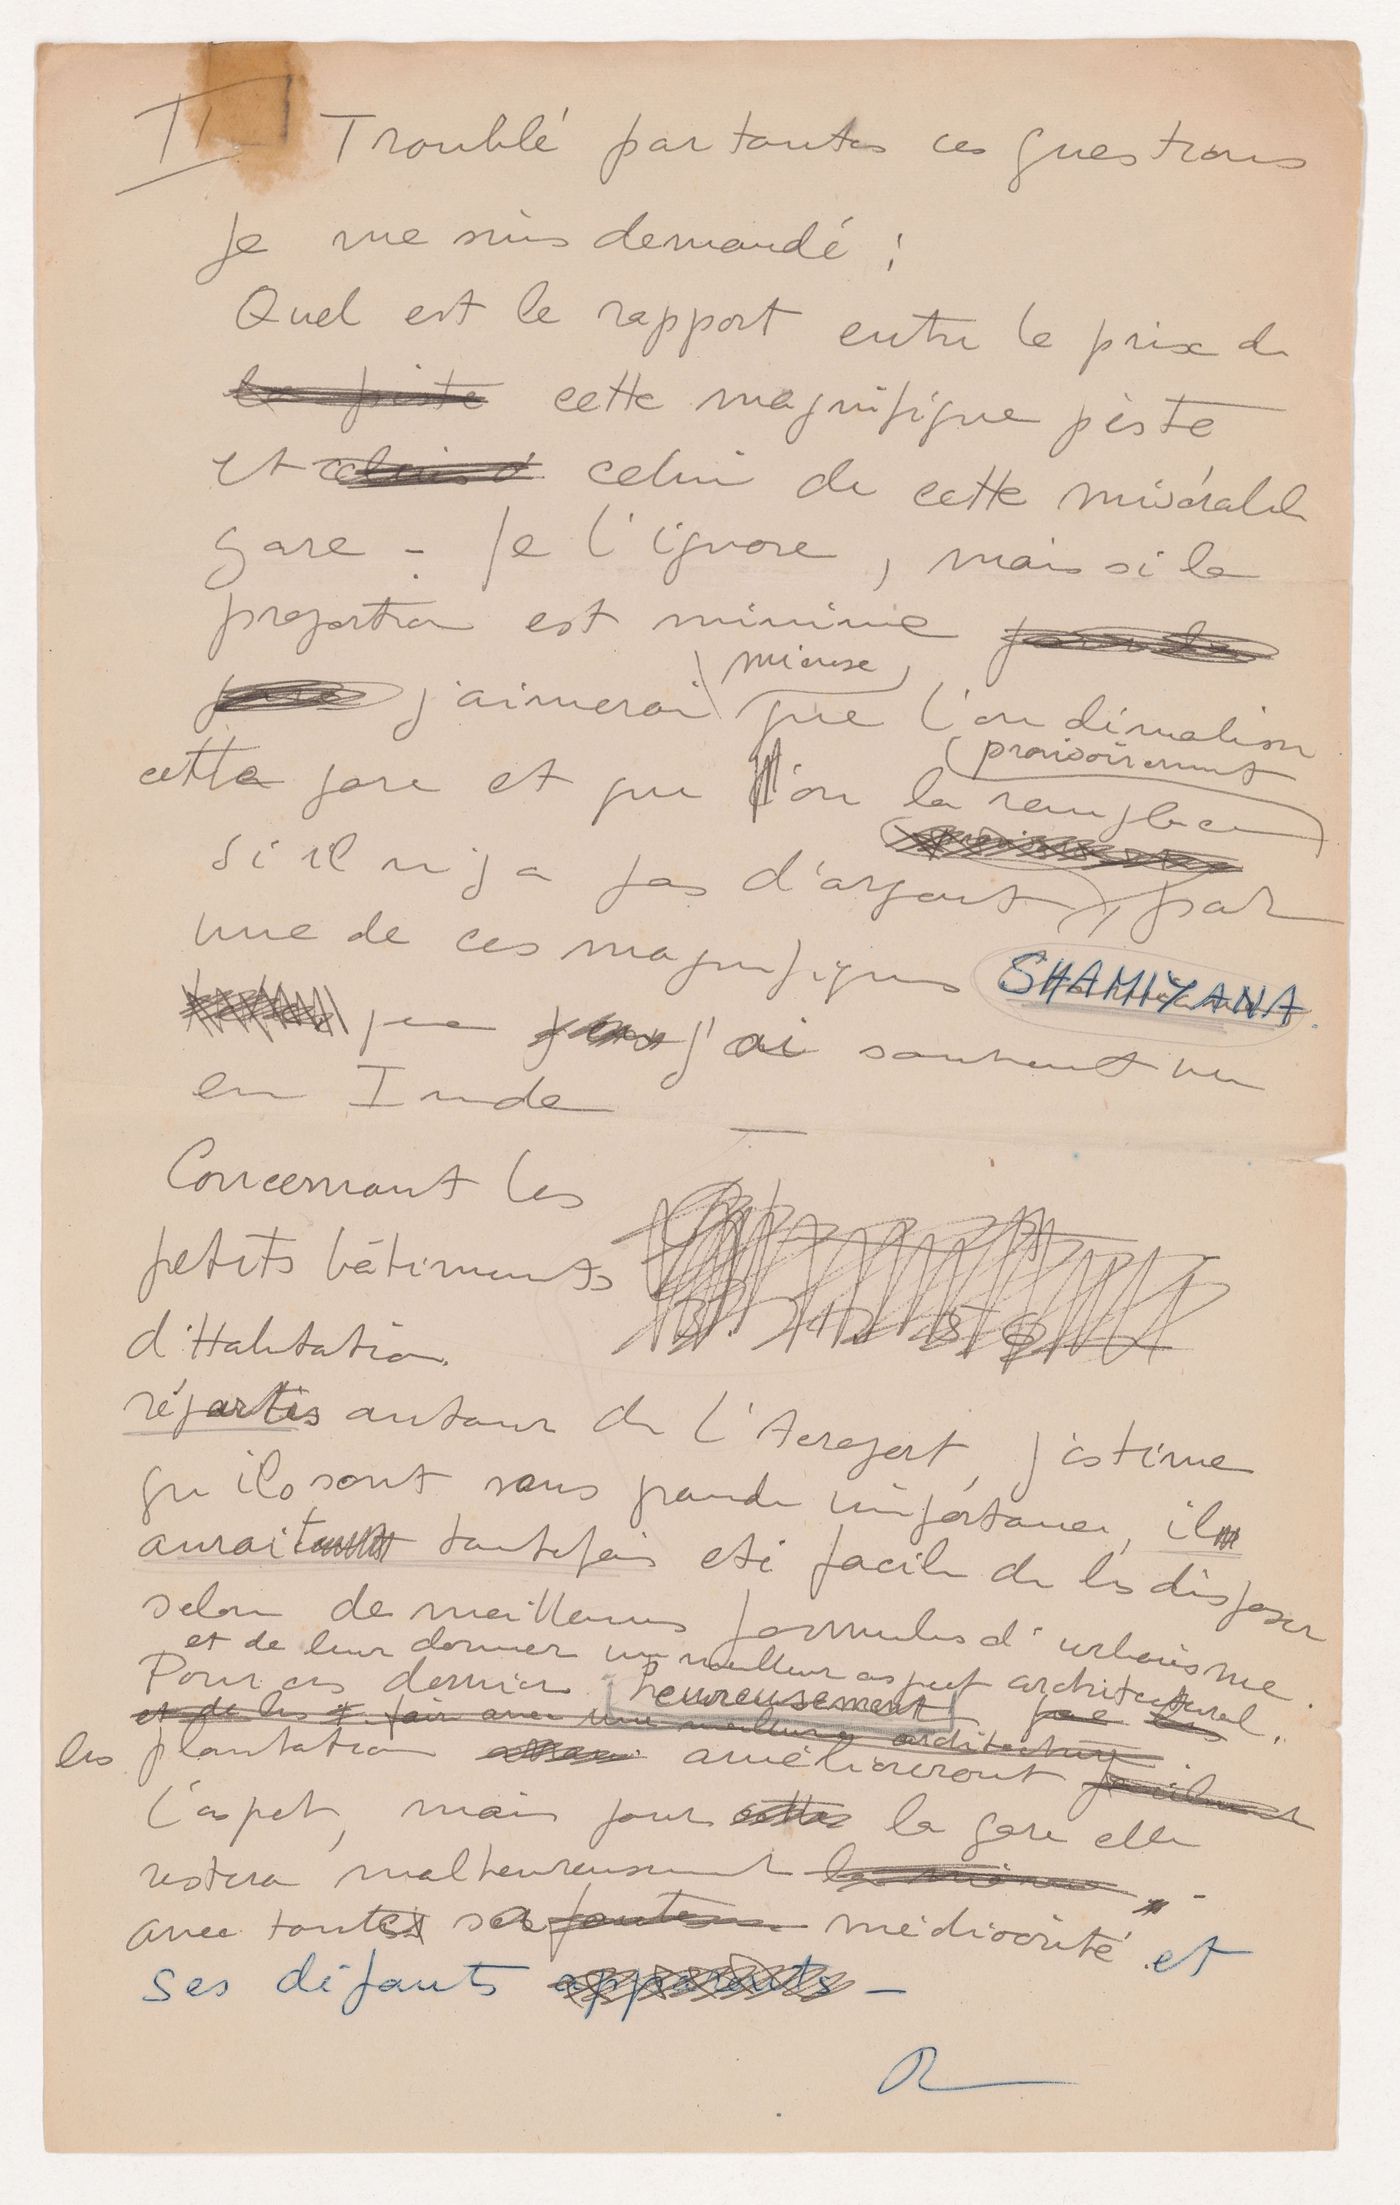 Troublé par toutes ces questions
je me suis demandé :
Quel est le rapport entre le prix de
la piste cette magnifique piste
et celui d celui de cette misérable
gare - Je l'ignore, mais si la
proportion est minime
mieux
j'aimerai que l'on démolisse
provisoirement
cette gare et que l'on la remplace
si il n'y a pas d'argent, par
une de ces magnifiques SHAMIYANA
que j'ai souvent vu
en Inde
Concernant les
petits bâtiments
d'Habitation.
répartis autour de l'Aeroport, j'estime
qu'ils sont sans grande importance, il
aurait toutefois eté facile de les disposer
selon de meilleures formules d'urbanisme.
et de leur donner un meilleur aspect architectural.
Pour ces derniers heureusement que les
et de les faire avec une meilleure architecture
les plantation amélioreront facilement
l'aspet, mais pour cette la gare elle
restera malheureusement la même
avec toute sa médiocrité et
ses défauts apparents -